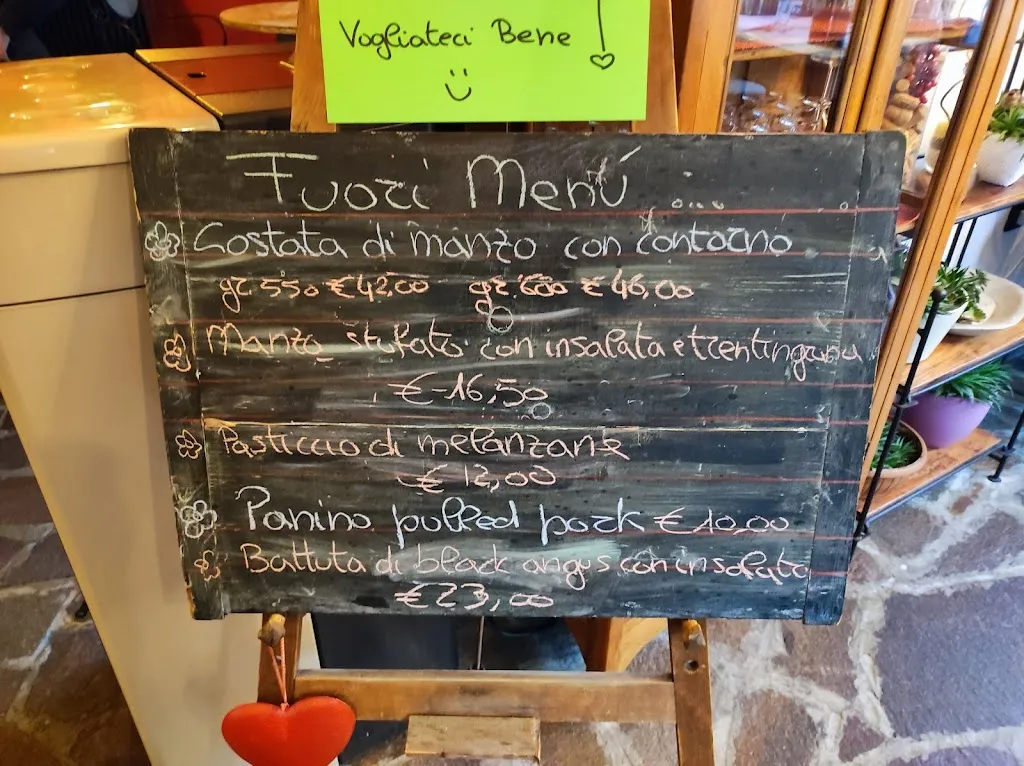 Vogliateci Bene !
Fuori Menú ...
Costata di manzo con contorno
gr. 550 € 42,00 gr. 600 € 46,00
Manzo stufato con insalata e trentingrana
€ 16,50
Pasticcio di melanzane
€ 12,00
Panino pulled pork € 10,00
Battuta di black angus con insalata
€ 23,00